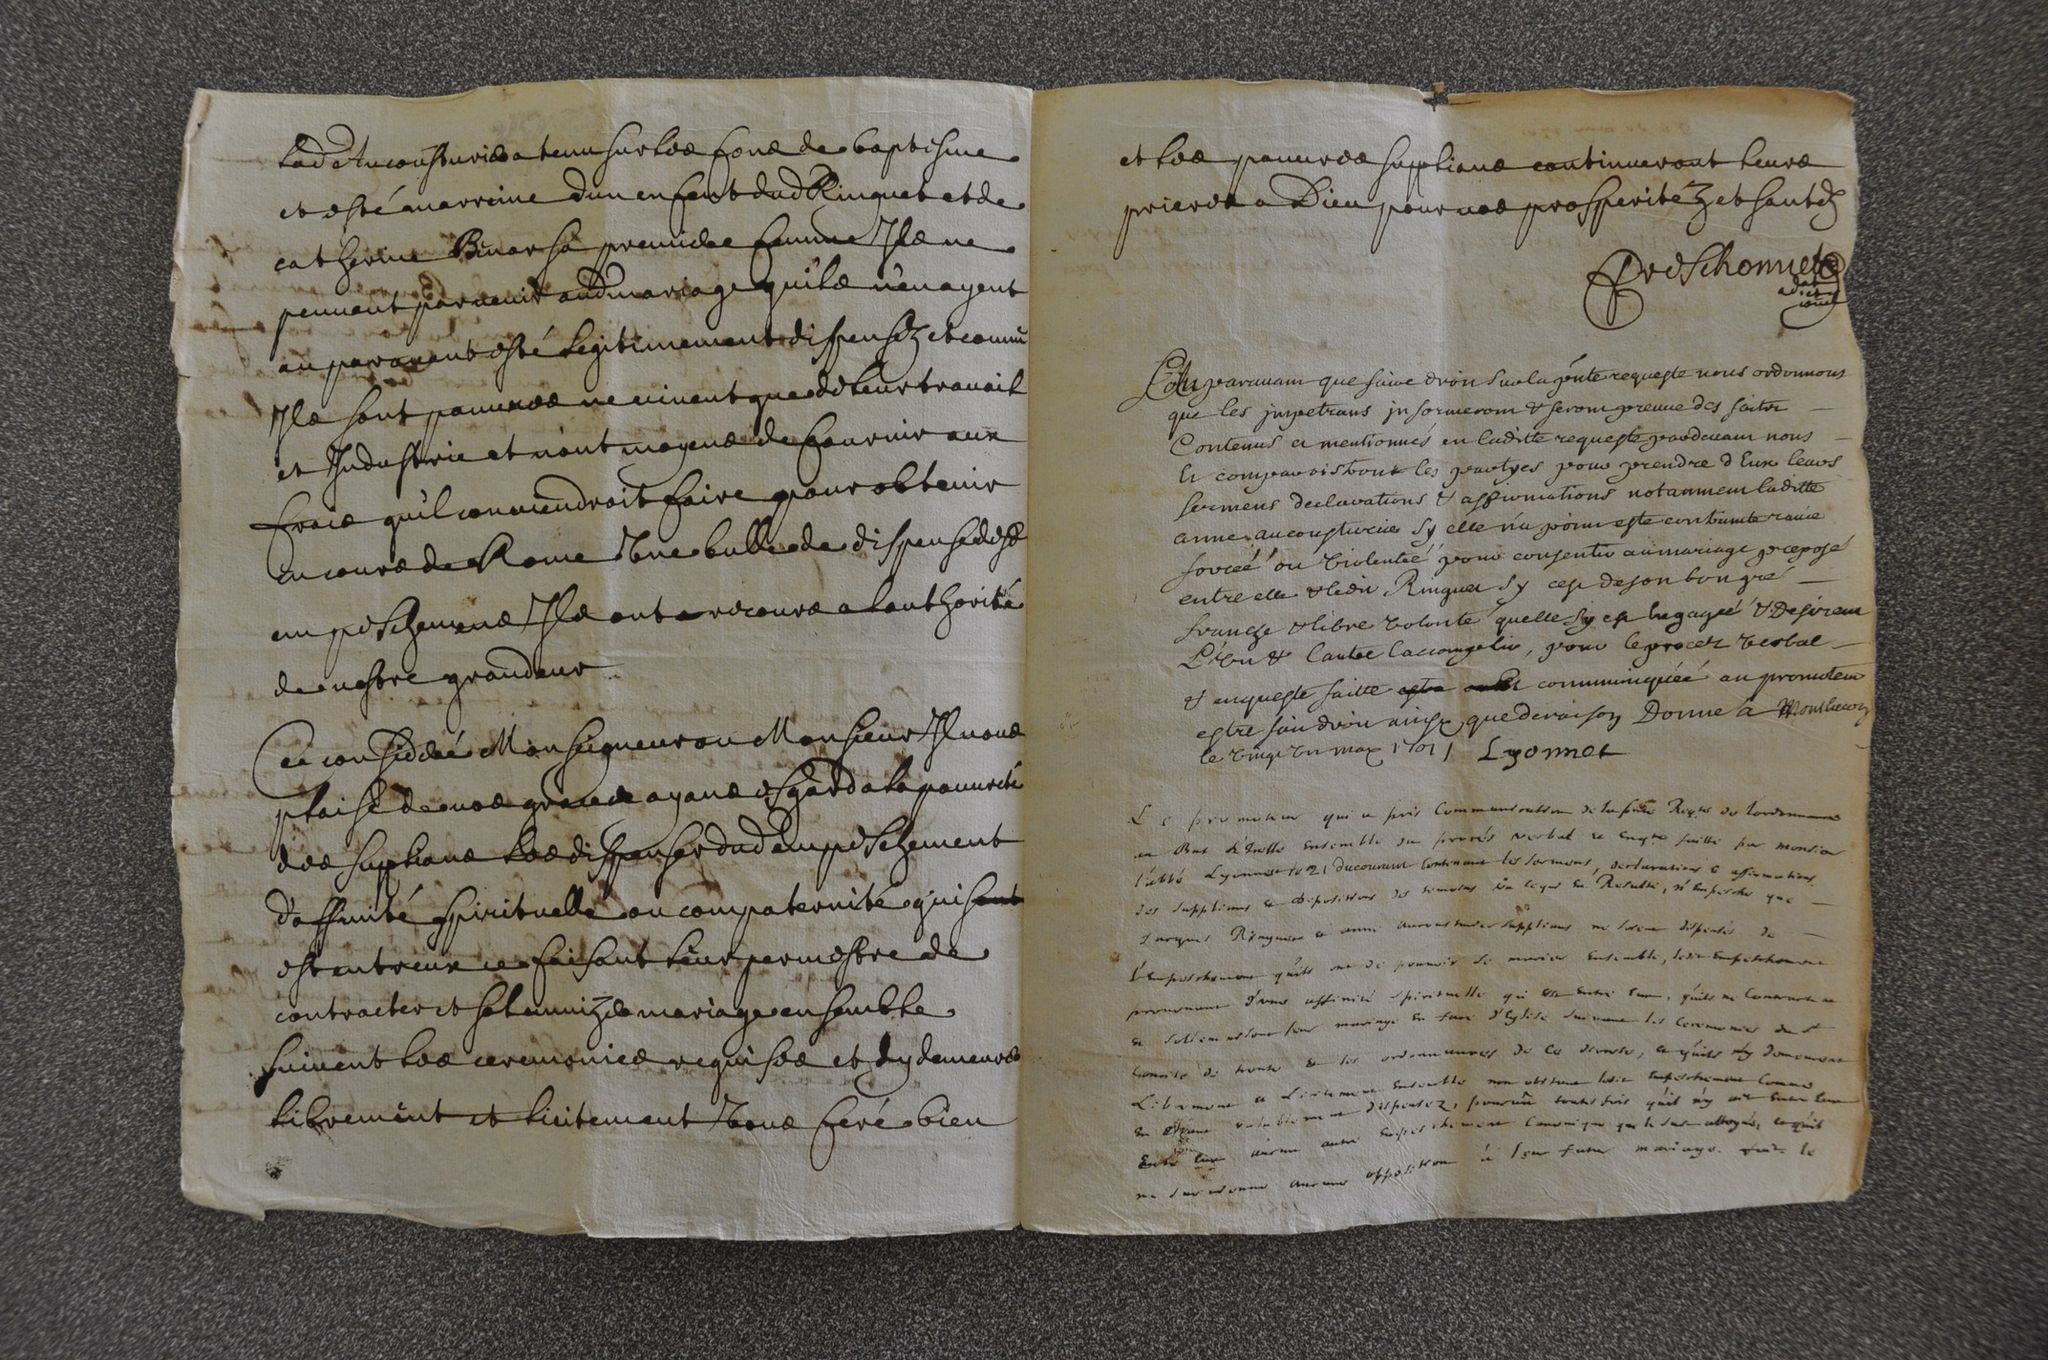 lad Aucousturies a tenu sur les fons de baptisme
et esté marreine dun enfent dud Ringuet et de
catherine Binar sa premiere femme Ils ne
peuvent parvenir aud mariage quils nenayent
auparavent esté legitimement dispensez et comme
Ils sont pauvres ne vivent que de leur travail
et Industrie et n'ont moyens de fournir aux
frais quil conviendroit faire pour obtenir
en cours de Rome Une bulle de dispense desd
empeschemens Ils ont recours a lauthorité
de vostre grandeur
Ce consideré Monseigneur ou Monsieur Il vous
plaise de vos graces ayans esgard a la pauvreté
des suplians les dispenser dud empeschement
d'affinité spirituelle ou compaternité qui
est entreux ce faisant leur permestre de
contracter et solemnizer mariage ensemble
suivent les ceremonies requises et dy demeurer
librement et licitement Vous feré bien
et les pauvres supplians continueront leurs
prieres a Dieu pour vos prosperitéz et santéz
Deschomets
Auparavant que faire droit sur la pnte requeste nous ordonnons
que les impetrans informeront & feront preuve des faits
Contenus et mentionnés en laditte requeste pardevant nous
Et comparoistront les partyes pour prendre d'Eux leurs
sermens declarations & affirmations notamment laditte
anne aucousturies sy elle n'a point esté contrainte ravie
forcéé ou Violentéé pour consentir au mariage proposé
entre elle & ledit Ringuet sy c'est de son bon gré
franche & libre volonté quelle sy est Engagéé & Desirent
L'un & l'autre l'accomplir, pour le procez verbal
& enqueste faitte communiquéé au promoteur
estre fait droit ainsy que de raison Donné a Montlucon
le vingt un may 1701 Lyonnet
Le promoteur qui a pris Communication de la Reqte de lordonnance
au Bas d'Icelle Ensemble du procés verbal et Enqte faitte par monsieur
l'abbé Lyonnet le 21 du courant Contenant les sermens, declarations & affirmations
des supplians & depositions des temoins n'Empesche que
Jacques Ringuet et anne aucousturies supplians ne soient dispensés de
l'Empeschement quils ont de pouvoir se marier Ensemble, ledit Empeschement
provenant d'une affinité spirituelle qui est Entre Eux, quils ne Contractent
& sollemnisent leur mariage En face d'Eglise Suivant les Ceremonies du St
Concile de trente & les ordonnances de ce diocese, et quils n'y demeurent
Librement et Licitement Ensemble non obstant ledit Empeschement Comme
En Etant valablement dispensez, pourvu toutes fois quil n'y ait
Entre Eux aucun autre Empeschement Canonique et quil
ne survienne aucune opposition à leur futur mariage. fait le